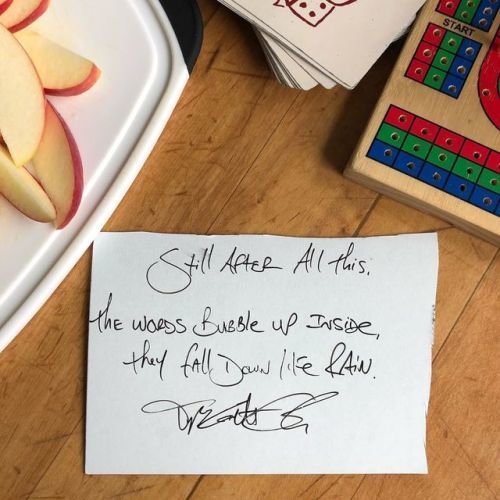 START
Still AFTER All this.
the WORDS BuBBle uP INSIDE,
they fAll Down like RAiN.